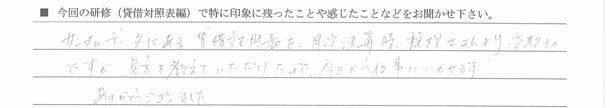 ■ 今回の研修（貸借対照表編）で特に印象に残ったことや感じたことなどをお聞かせ下さい。
サンプルデータにある貸借対照表を、月次決算時、税理士さんより受取るの
ですが 見方を教えていただけたので、今日から仕事にいかせます
ありがとうございました